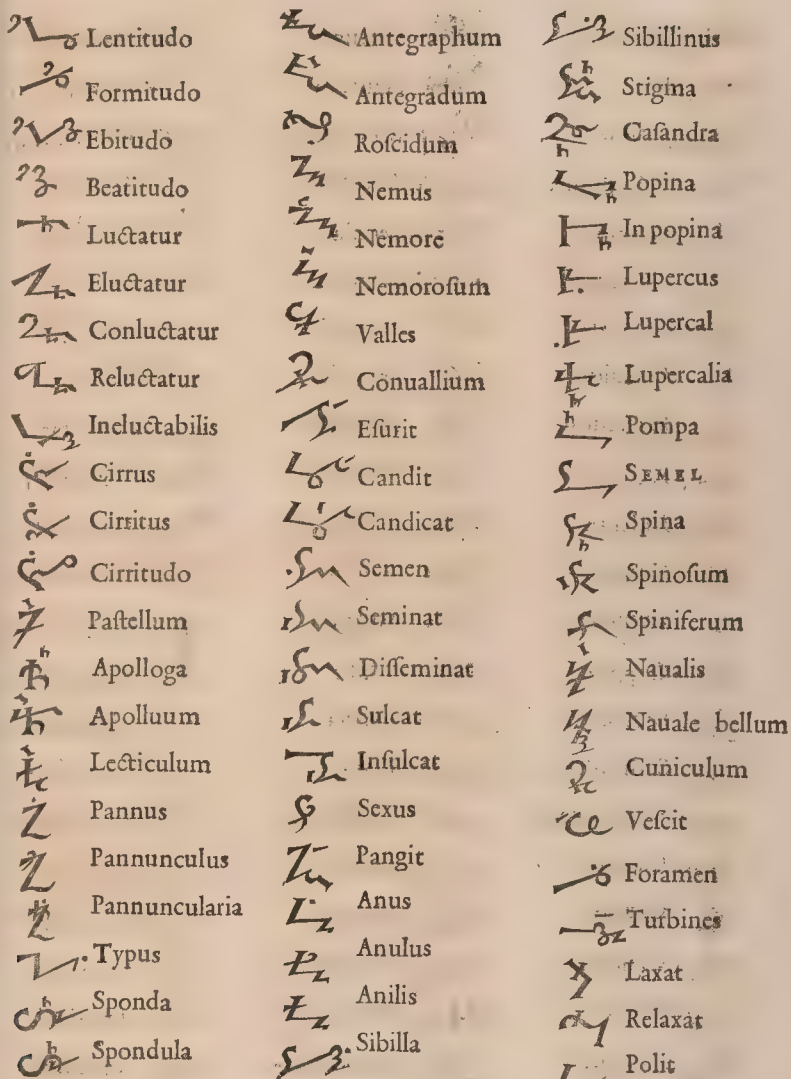 Lentitudo
Formitudo
Ebitudo
Beatitudo
Luctatur
Eluctatur
Conluctatur
Reluctatur
Ineluctabilis
Cirrus
Cirritus
Cirritudo
Paſtellum
Apolloga
Apolluum
Lecticulum
Pannus
Pannunculus
Pannuncularia
Typus
Sponda
Spondula
Antegraphum
Antegradum
Roſcidum
Nemus
Nemore
Nemoroſum
Valles
Conuallium
Eſurit
Candit
Candicat
Semen
Seminat
Diſſeminat
Sulcat
Inſulcat
Sexus
Pangit
Anus
Anulus
Anilis
Sibilla
Sibillinus
Stigina
Caſandra
Popina
In popina
Lupercus
Lupercal
Lupercalia
Pompa
SEMEL
Spina
Spinoſum
Spiniferum
Naualis
Nauale bellum
Cuniculum
Veſcit
Foramen
Turbines
Laxat
Relaxat
Polit